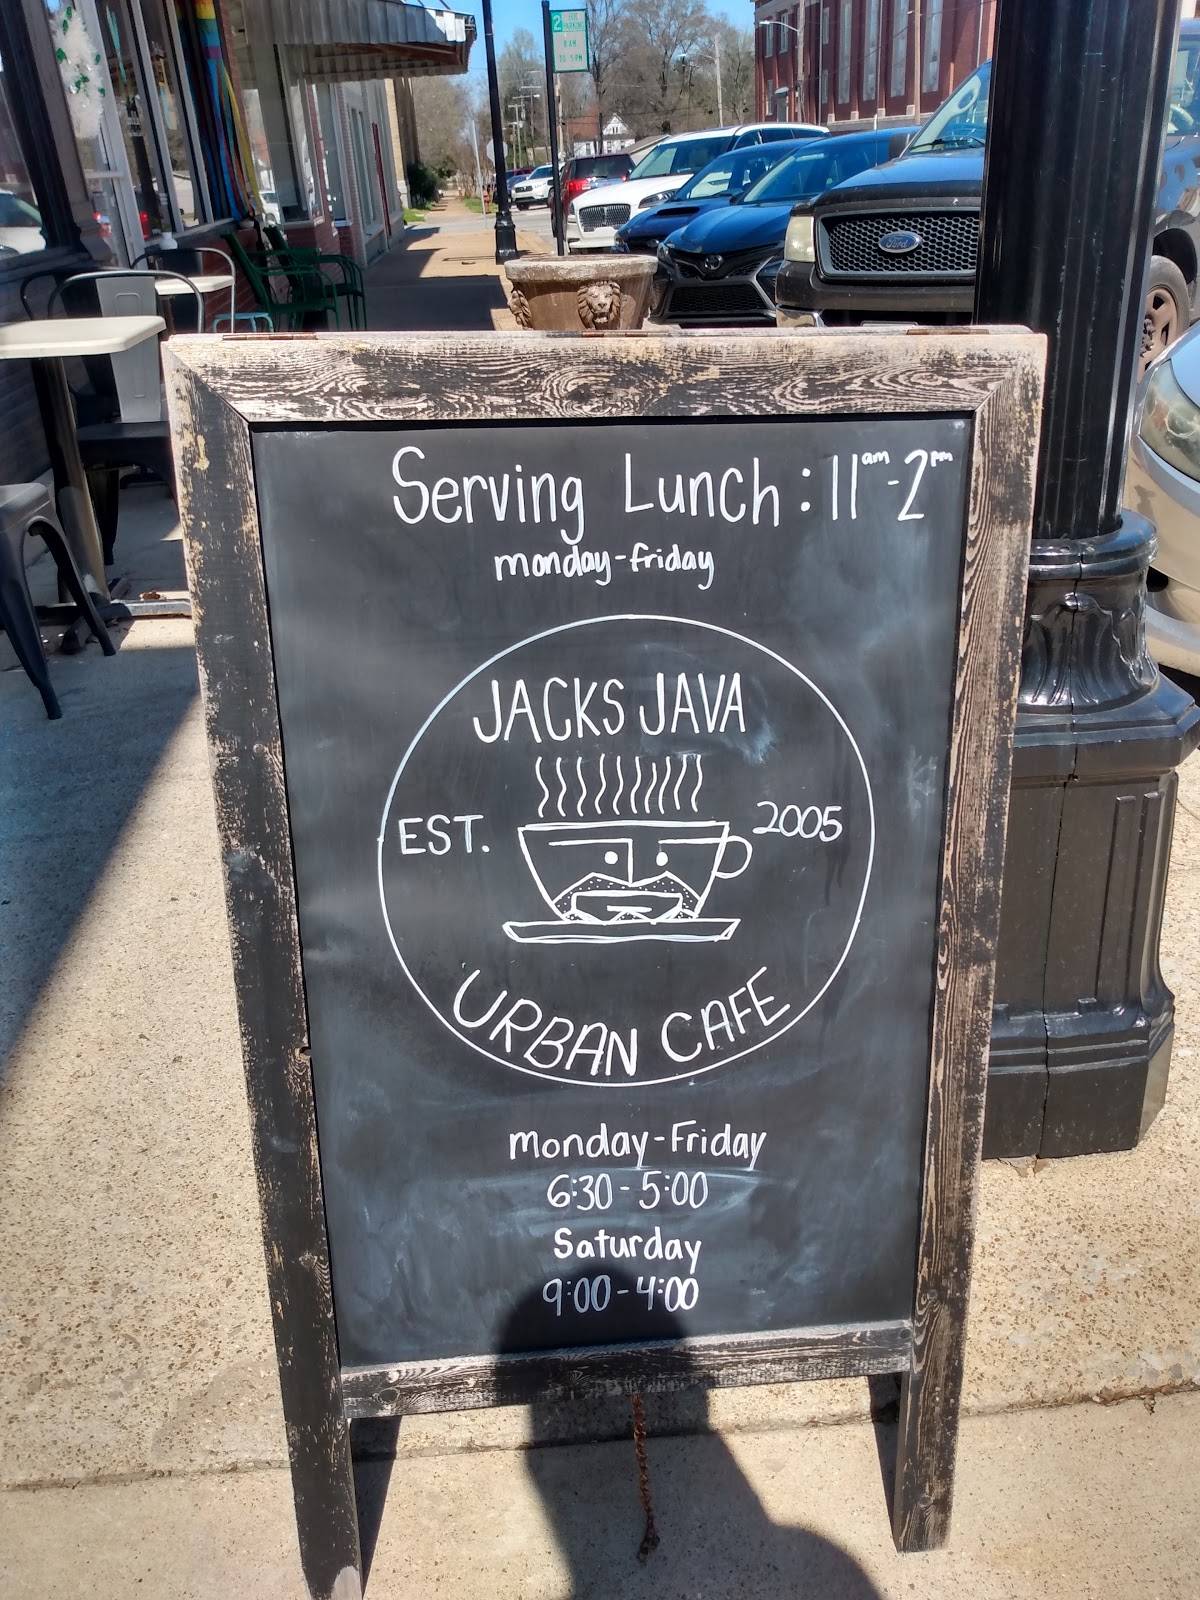 2 HR
PARKING
8 AM
TO 5 PM
Ford
Serving Lunch: 11am-2pm
monday-friday
JACKS JAVA
EST. 2005
URBAN CAFE
monday-Friday
6:30-5:00
Saturday
9:00-4:00